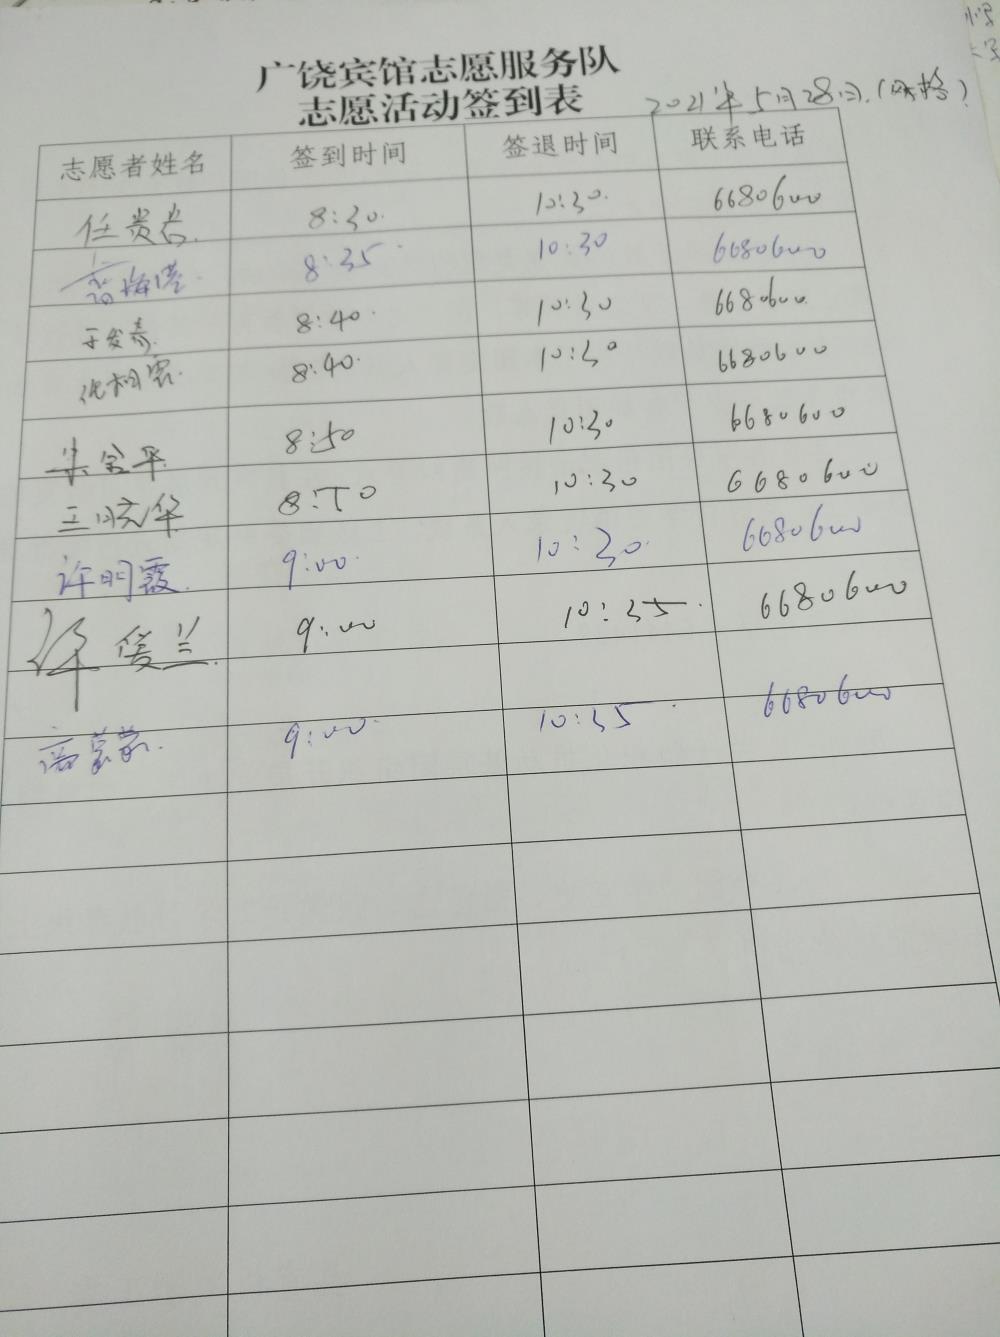 广饶宾馆志愿服务队
志愿活动签到表
2021年5月28日.(网格)
志愿者姓名 签到时间 签退时间 联系电话
任贵 8:30. 10:30. 6680600
8:35 10:30 6680600
于发 8:40 10:30 6680600
8:40 10:30 6680600
8:50 10:30 6680600
王 华 8:50 10:30 6680600
许明霞 9:00 10:30 6680600
9:00 10:35 6680600
9:00 10:35 6680600